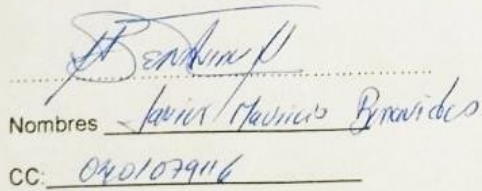 Nombres Javier Mauricio Benavides
CC: 0401079116